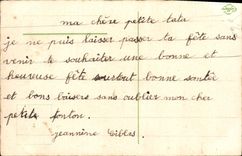 ma chère petite tata
je ne puis laisser passer ta fête sans
venir te souhaiter une bonne et
heureuse fête surtout bonne santée
et bons baisers sans oublier mon cher
petit tonton.
jeannine